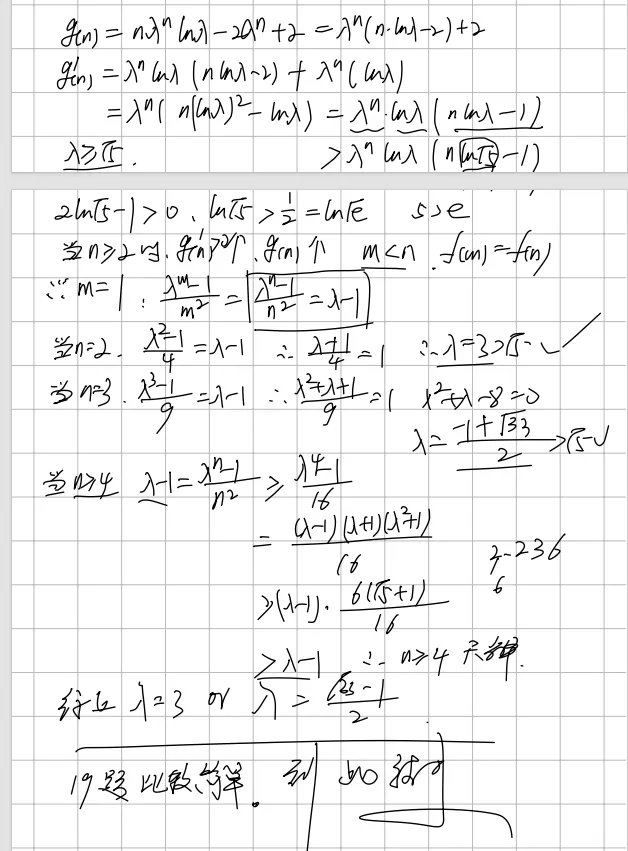 g(n) = nλⁿ lnλ - 2λⁿ + 2 = λⁿ(n·lnλ - 2) + 2
g'(n) = λⁿ lnλ (n lnλ - 2) + λⁿ (lnλ)
= λⁿ ( n(lnλ)² - lnλ ) = λⁿ · lnλ ( n lnλ - 1 )
λ ≥ √5 . > λⁿ lnλ ( n ln√5 - 1 )
2ln√5 - 1 > 0 、 ln√5 > 1/2 = ln√e 5 > e
当 n ≥ 2 时、g'(n) > 0 、g(n) ↑ m < n . f(m) = f(n)
m = 1 : (λᵐ - 1)/m² = (λⁿ - 1)/n² = λ - 1
当 n = 2 . (λ² - 1)/4 = λ - 1 ∴ (λ + 1)/4 = 1 ∴ λ = 3 > √5 ✓
当 n = 3 . (λ³ - 1)/9 = λ - 1 ∴ (λ² + λ + 1)/9 = 1 λ² + λ - 8 = 0
λ = (-1 + √33)/2 > √5 ✓
当 n ≥ 4 λ - 1 = (λⁿ - 1)/n² ≥ (λ⁴ - 1)/16
= (λ - 1)(λ + 1)(λ² + 1)/16
≥ (λ - 1) · 6(√5 + 1)/16
> λ - 1 ∴ n ≥ 4 无解.
综上 λ = 3 or λ = (√33 - 1)/2
19题 比较简单。